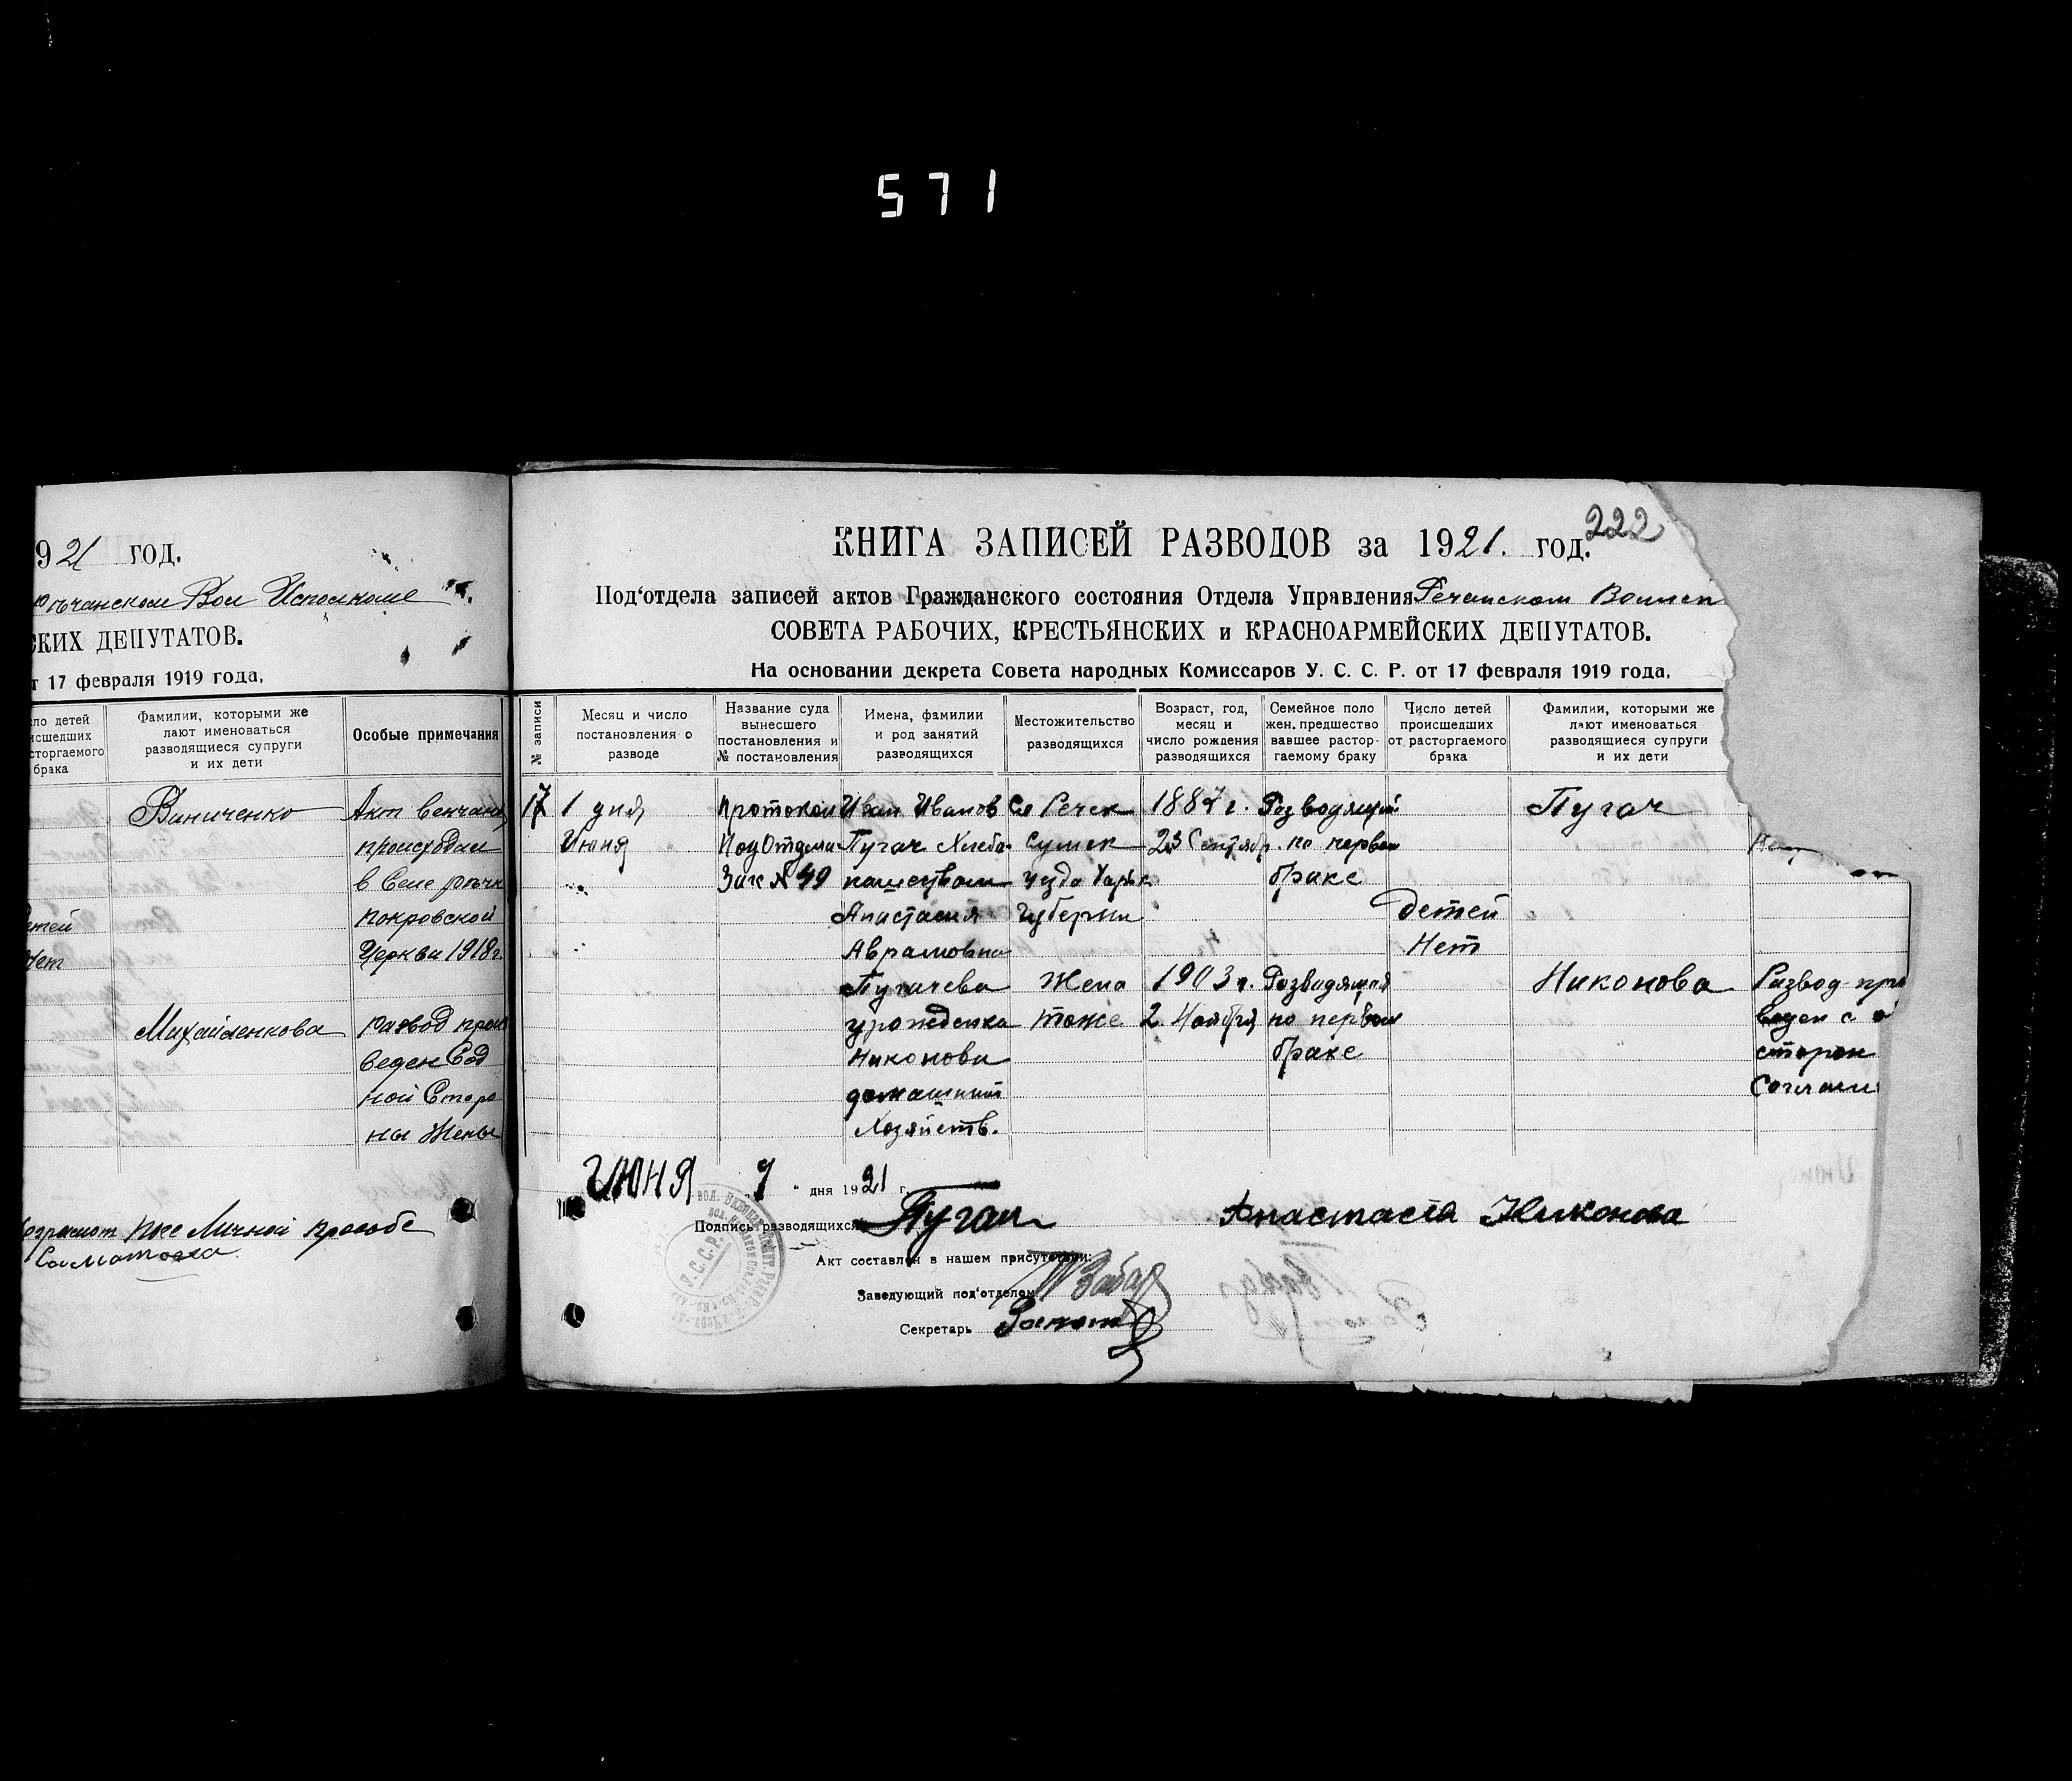 571
921 год.
Вол Исполкоме
СКИХ ДЕПУТАТОВ.
т 17 февраля 1919 года,
ло детей
исшедших
сторгаемого
брака
Фамилии, которыми же
лают именоваться
разводящиеся супруги
и их дети
Особые примечания
Виниченко
Акт венчания
происходил
в Селе речк
покровской
Церкви 1918 г.
етей
Нет
Михайленкова
развод произ
веден Сод
ной Сторо
ны Жены
Личной прозьбе
222
КНИГА ЗАПИСЕЙ РАЗВОДОВ за 1921. год.
Под‘отдела записей актов Гражданского состояния Отдела Управления Речанском Волисп
СОВЕТА РАБОЧИХ, КРЕСТЬЯНСКИХ и КРАСНОАРМЕЙСКИХ ДЕПУТАТОВ.
На основании декрета Совета народных Комиссаров У. С. С. Р. от 17 февраля 1919 года,
№ записи
Месяц и число
постановления о
разводе
Название суда
вынесшего
постановления и
№ постановления
Имена, фамилии
и род занятий
разводящихся
Местожительство
разводящихся
Возраст, год,
месяц и
число рождения
разводящихся
Семейное поло
жен. предшество
вавшее растор-
гаемому браку
Число детей
происшедших
от расторгаемого
брака
Фамилии, которыми же
лают именоваться
разводящиеся супруги
и их дети
17
1 дня
Июня
Протокол
ПодОтдела
Зак № 49
Иван Иванов
Пугач Хлебо
пашеством
Анастасия
Аврамовна
Пугачева
урожденка
Никонова
домашний
Хозяйств.
Се Речек
Сумск
уезда Харьк
Губернии
Жена
тоже
1887 г.
23 Сентябр.
1903 г.
2 Ноября
Разводящий
по первом
браке
Разводящая
по первом
браке
детей
Нет
Пугач
Никонова
Развод про
веден с о
сторон
Соглаши
Июня 7 " дня 1921 г.
Подпись разводящихся Пугач Анастасия Никонова
Акт составлен в нашем присутствии:
Заведующий под‘отделом
Секретарь
У.С.С.Р.